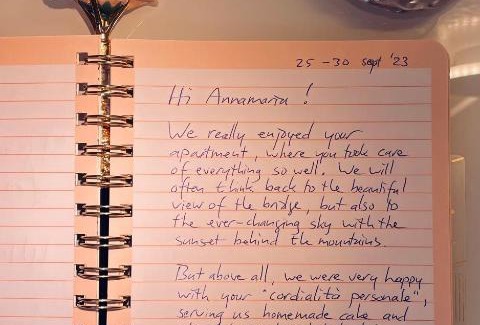 25 - 30 sept '23
Hi Annamaria !
We really enjoyed your
apartment, where you took care
of everything so well. We will
often think back to the beautiful
view of the bridge, but also to
the ever-changing sky with the
sunset behind the mountains.
But above all, we were very happy
with your "cordialità personale",
serving us homemade cake and